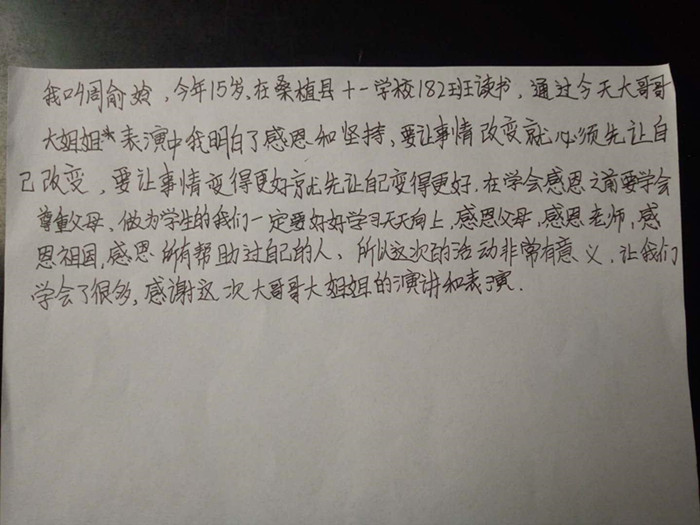 我叫周俞姣，今年15岁、在桑植县十一学校182班读书，通过今天大哥哥
大姐姐表演中我明白了感恩和坚持，要让事情改变就必须先让自
己改变，要让事情变得更好就先让自己变得更好。在学会感恩之前要学会
尊重父母、做为学生的我们一定要好好学习天天向上，感恩父母，感恩老师，感
恩祖国，感恩所有帮助过自己的人、所以这次的活动非常有意义，让我们
学会了很多，感谢这次大哥哥大姐姐的演讲和表演．